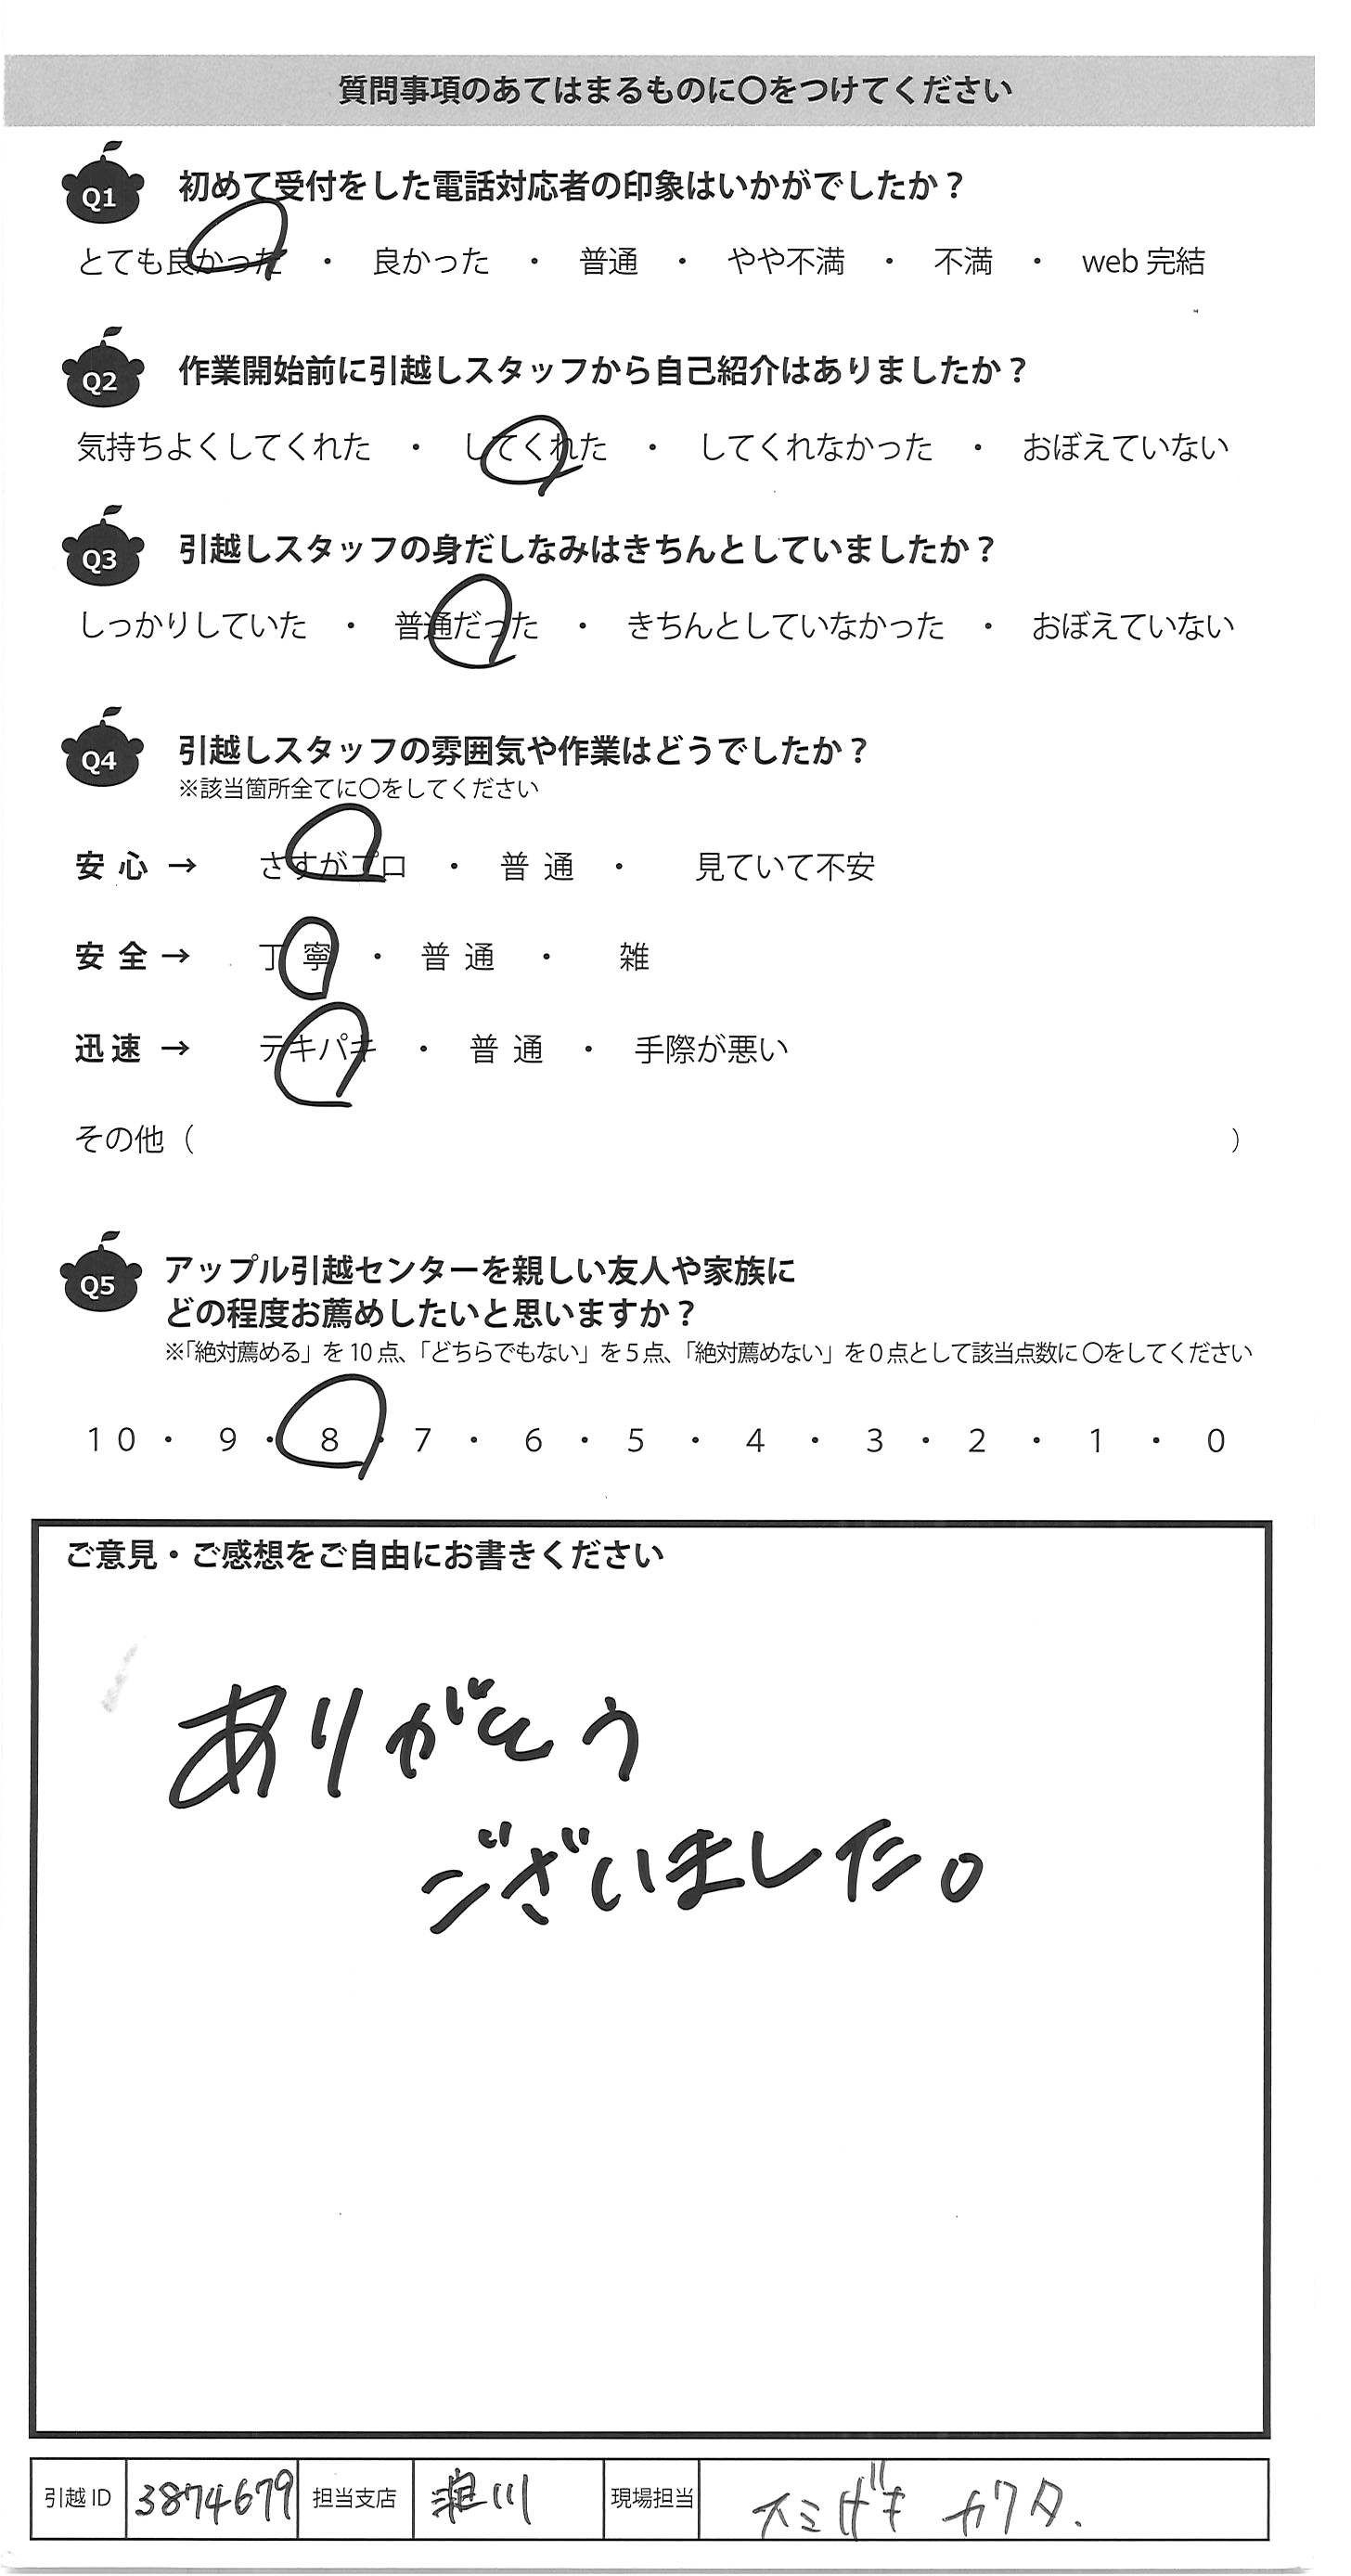 質問事項のあてはまるものに〇をつけてください
Q1 初めて受付をした電話対応者の印象はいかがでしたか？
とても良かった ・ 良かった ・ 普通 ・ やや不満 ・ 不満 ・ web 完結
Q2 作業開始前に引越しスタッフから自己紹介はありましたか？
気持ちよくしてくれた ・ してくれた ・ してくれなかった ・ おぼえていない
Q3 引越しスタッフの身だしなみはきちんとしていましたか？
しっかりしていた ・ 普通だった ・ きちんとしていなかった ・ おぼえていない
Q4 引越しスタッフの雰囲気や作業はどうでしたか？
※該当箇所全てに〇をしてください
安 心 → さすがプロ ・ 普 通 ・ 見ていて不安
安 全 → 丁 寧 ・ 普 通 ・ 雑
迅 速 → テキパキ ・ 普 通 ・ 手際が悪い
その他（ ）
Q5 アップル引越センターを親しい友人や家族に
どの程度お薦めしたいと思いますか？
※「絶対薦める」を 10 点、「どちらでもない」を 5 点、「絶対薦めない」を 0 点として該当点数に 〇をしてください
10 ・ 9 ・ 8 ・ 7 ・ 6 ・ 5 ・ 4 ・ 3 ・ 2 ・ 1 ・ 0
ご意見・ご感想をご自由にお書きください
ありがとう
ございました。
引越 ID 3874679 担当支店 淀川 現場担当 カワタ.